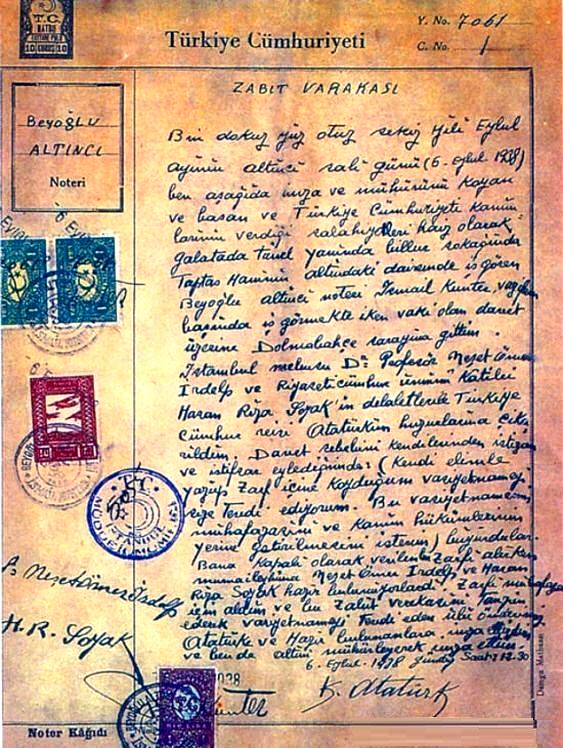 T.C.
10 KURUŞ 10
Türkiye Cümhuriyeti
Y. No. 7061
C. No. 1
ZABIT VARAKASI
Beyoğlu
ALTINCI
Noteri
Bin dokuz yüz otuz sekiz yılı Eylul
ayının altıncı salı günü (6-Eylul 1938)
ben aşağıda imza ve mühürünü koyan
ve basan ve Türkiye Cümhuriyeti kanun
larının verdiği salahiyetleri haiz olarak
galatada tünel yanında billur sokağında
Taptas Hanının altındaki dairemde iş gören
Beyoğlu altıncı noteri İsmail Kunter vazifem
başında iş görmekte iken vaki olan davet
üzerine Dolmabahçe sarayına gittim.
İstanbul mebusu Dr. Profesör Neşet Ömer
İrdelp ve Riyaseticümhur umumi Kâtibi
Hasan Rıza Soyak'ın delaletlerile Türkiye
Cümhur reisi Atatürkün huzurlarına çıka
rıldım. Davet sebebini kendilerinden istizan
ve istifsar eylediğimde: (Kendi elimle
yazıp zarf içine koyduğum vasiyetnamemi
size tevdi ediyorum. Bu vasiyetnamemin
muhafazasını ve kanun hükümlerinin
yerine getirilmesini isterim) buyurdular.
Bana kapalı olarak verilen zarfı alırken
mumaileyhima Neşet Ömer İrdelp ve Hasan
Rıza Soyak hazır bulunuyorlardı. Zarfı muhafaza
için aldım ve bu zabıt varakasını tanzim
ederek vasiyetnameyi tevdi eden ulu önderimiz
Atatürke ve hazır bulunanlara imza
ve ben de altını mühürleyerek imza ettim.
6. Eylul. 1938 günü Saat: 12.30
Neşet Ömer İrdelp
H. R. Soyak
Kunter
K. Atatürk
Noter Kâğıdı
Damga Matbaası